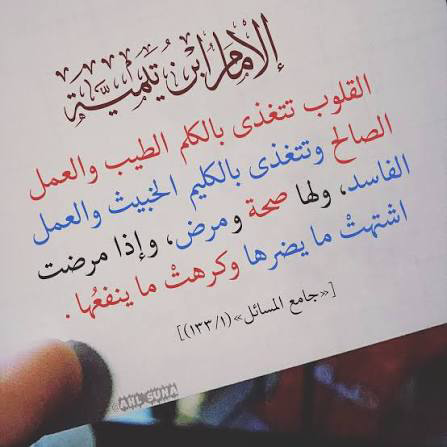 الإمام ابن تيمية
القلوب تتغذى بالكلم الطيب والعمل
الصالح وتتغذى بالكليم الخبيث والعمل
الفاسد، ولها صحة ومرض، وإذا مرضت
اشتهتْ ما يضرها وكرهتْ ما ينفعُها .
[«جامع المسائل» (١٣٣/١)]
@AHL_SUNA